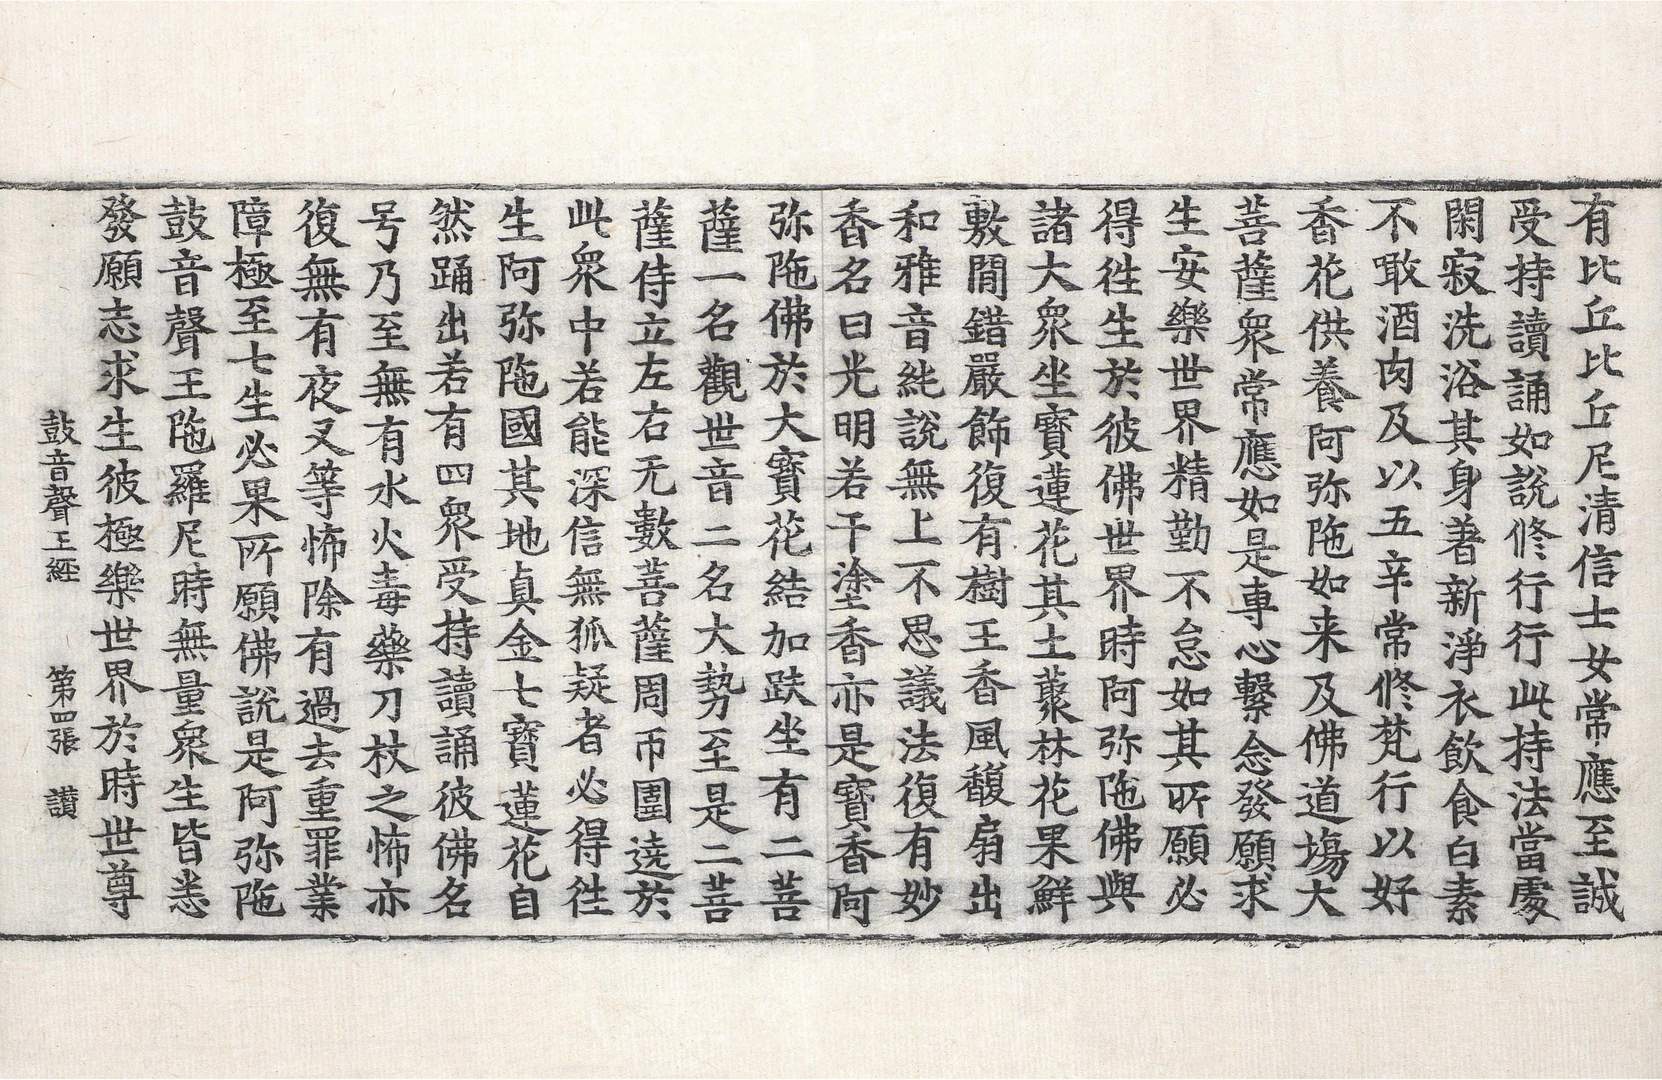 有比丘比丘尼清信士女常應至誠
受持讀誦如說修行行此持法當處
閑寂洗浴其身著新淨衣飲食白素
不噉酒肉及以五辛常修梵行以好
香花供養阿弥陁如来及佛道場大
菩薩衆常應如是專心繫念發願求
生安樂世界精勤不怠如其所願必
得徃生於彼佛世界時阿弥陁佛與
諸大衆坐寶蓮花其土藂林花果鮮
敷間錯嚴飾復有樹王香風馥扇出
和雅音純說無上不思議法復有妙
香名曰光明若干塗香亦是寶香阿
弥陁佛於大寶花結加趺坐有二菩
薩一名觀世音二名大勢至是二菩
薩侍立左右无數菩薩周帀圍遶於
此衆中若能深信無狐疑者必得徃
生阿弥陁國其地真金七寶蓮花自
然踊出若有四衆受持讀誦彼佛名
号乃至無有水火毒藥刀杖之怖亦
復無有夜叉等怖除有過去重罪業
障極至七生必果所願佛說是阿弥陁
鼓音聲王陁羅尼時無量衆生皆悉
發願志求生彼極樂世界於時世尊
鼓音聲王經 第四張 讃